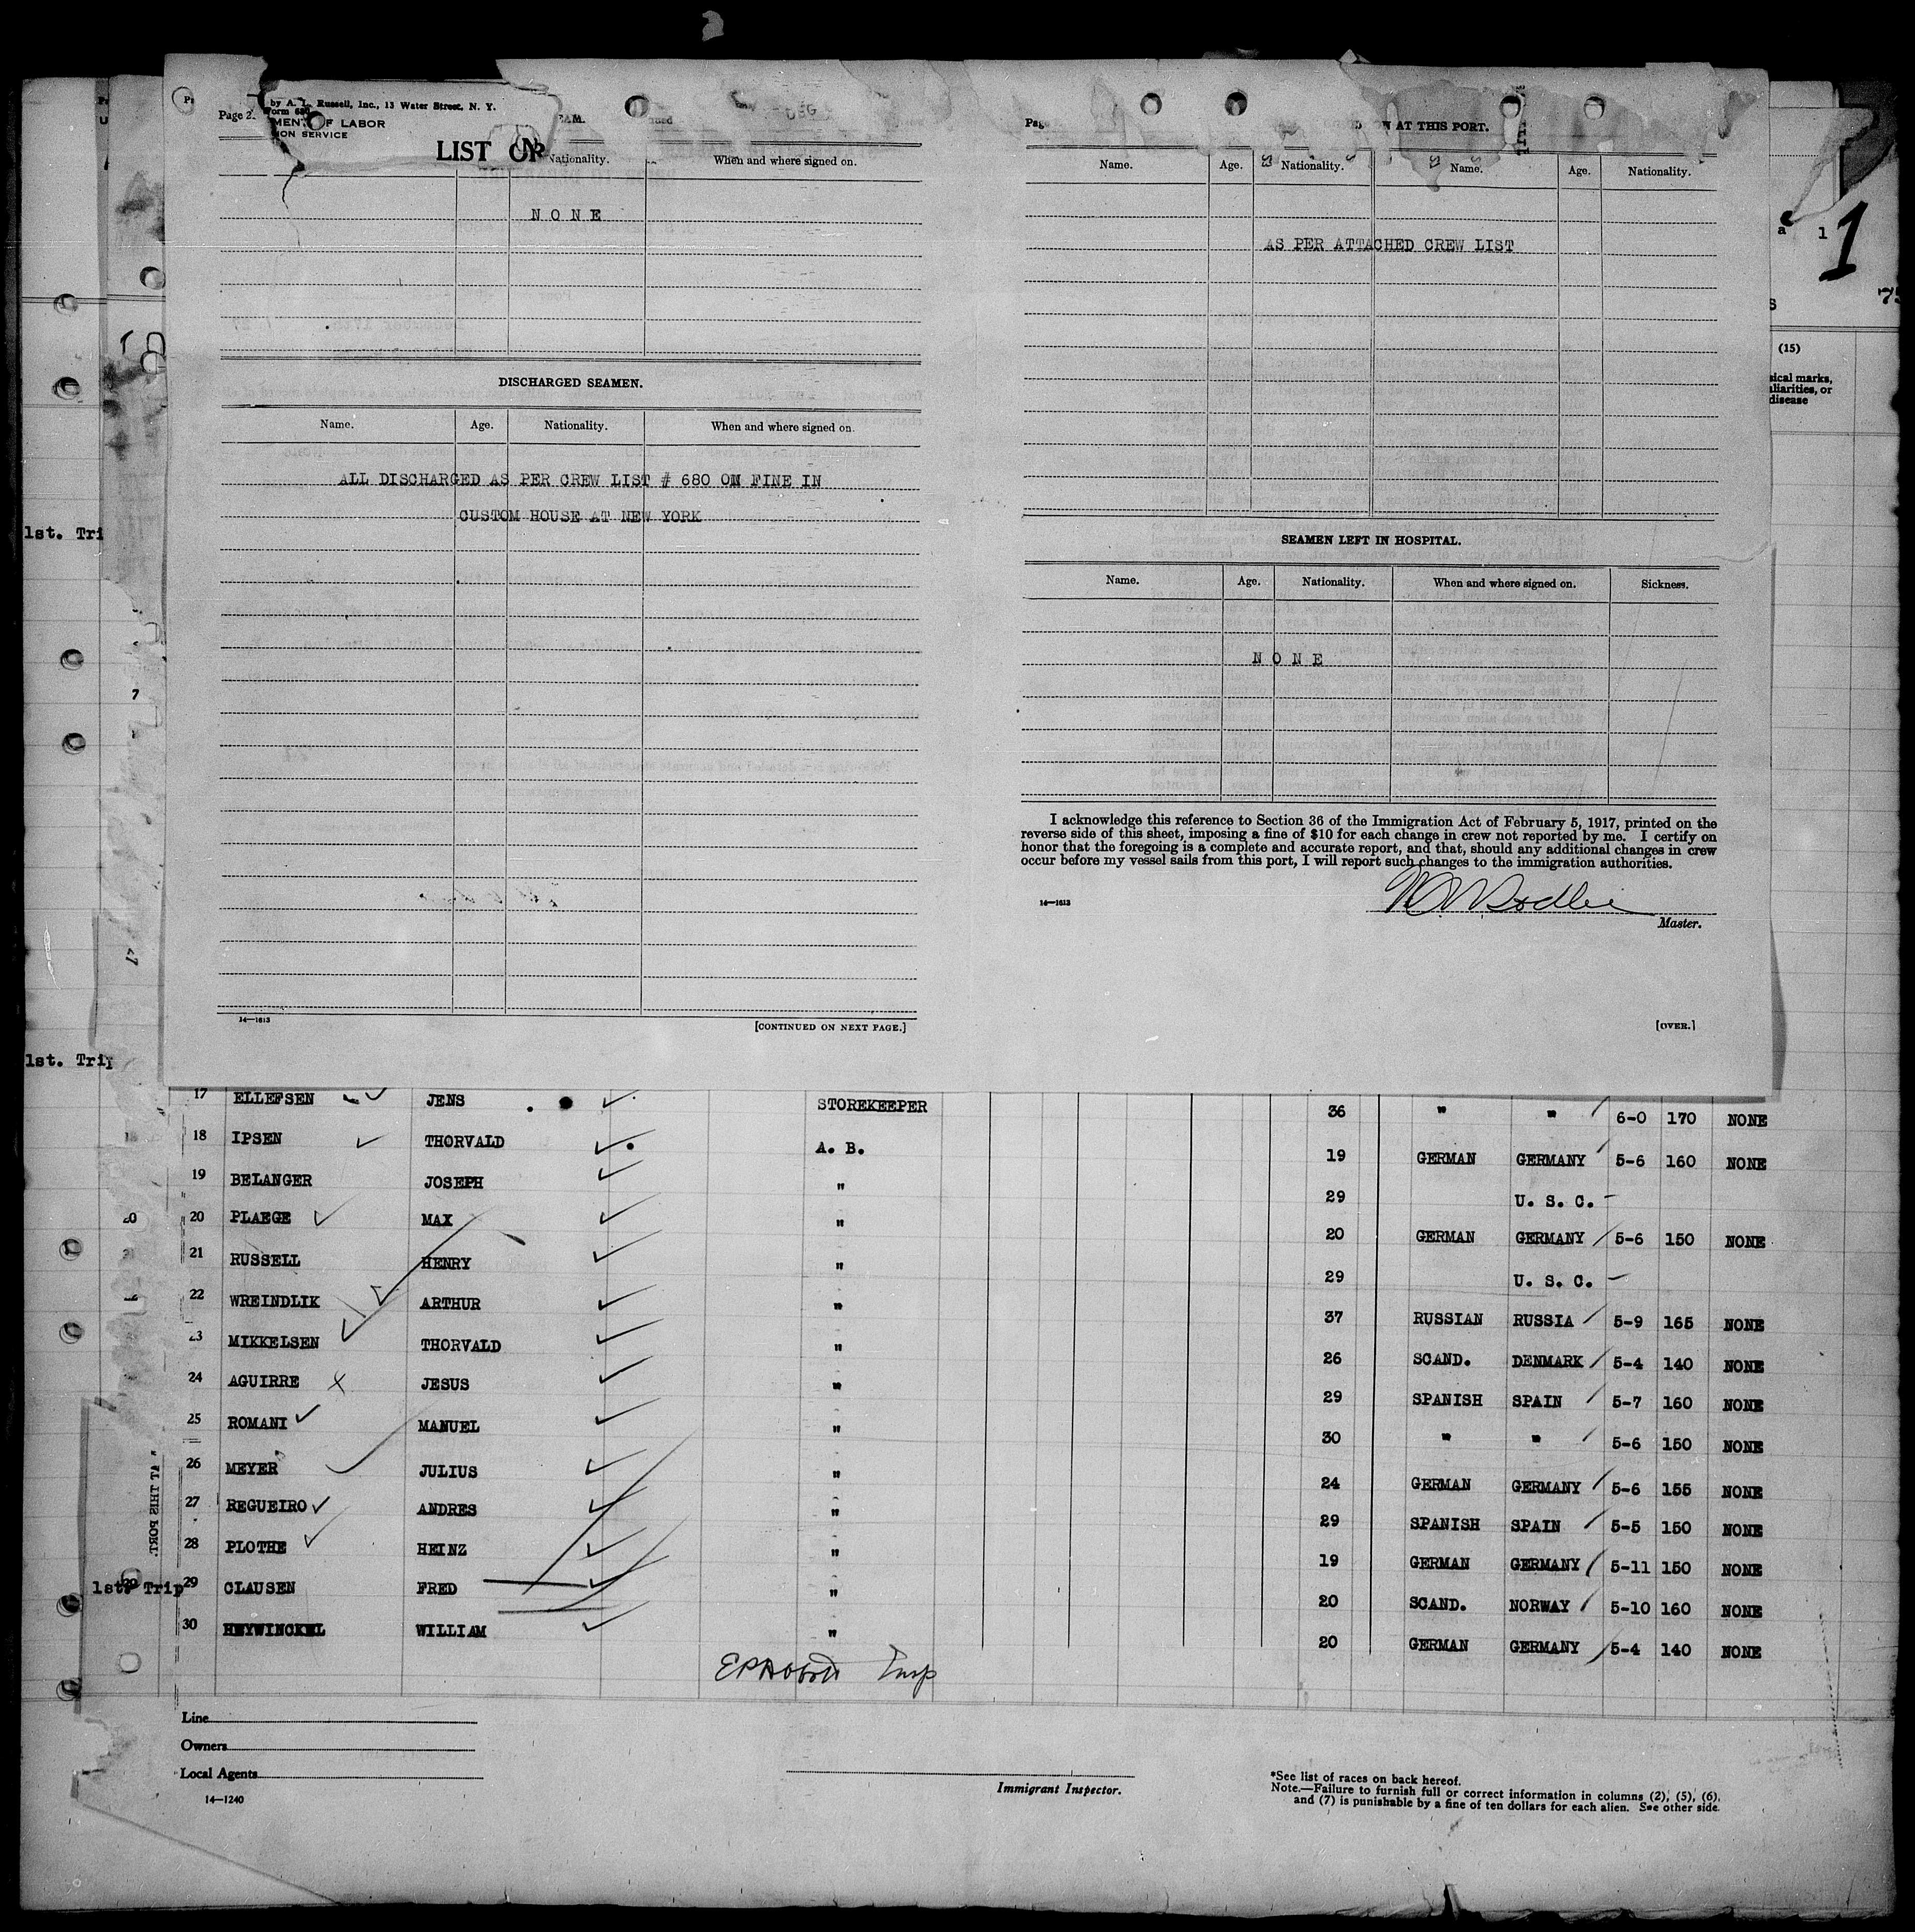 by A. L. Russell, Inc., 13 Water Street, N. Y.
Form 680
OF LABOR
SERVICE
Page 2.
LIST OF
Nationality. When and where signed on.
NONE
DISCHARGED SEAMEN.
Name. Age. Nationality. When and where signed on.
ALL DISCHARGED AS PER CREW LIST # 680 ON FINE IN
CUSTOM HOUSE AT NEW YORK
14—1613 [CONTINUED ON NEXT PAGE.]
AT THIS PORT.
Name. Age. Nationality. Name. Age. Nationality.
AS PER ATTACHED CREW LIST
SEAMEN LEFT IN HOSPITAL.
Name. Age. Nationality. When and where signed on. Sickness.
NONE
I acknowledge this reference to Section 36 of the Immigration Act of February 5, 1917, printed on the
reverse side of this sheet, imposing a fine of $10 for each change in crew not reported by me. I certify on
honor that the foregoing is a complete and accurate report, and that, should any additional changes in crew
occur before my vessel sails from this port, I will report such changes to the immigration authorities.
14—1613
Master.
[OVER.]
1
(15)
disease
1st. Tri
7
1st. Trip
17 ELLEFSEN JENS STOREKEEPER 36 " " 6-0 170 NONE
18 IPSEN THORVALD A. B. 19 GERMAN GERMANY 5-6 160 NONE
19 BELANGER JOSEPH " 29 U. S. C. -
20 PLAEGE MAX " 20 GERMAN GERMANY 5-6 150 NONE
21 RUSSELL HENRY " 29 U. S. C. -
22 WREINDLIK ARTHUR " 37 RUSSIAN RUSSIA 5-9 165 NONE
23 MIKKELSEN THORVALD " 26 SCAND. DENMARK 5-4 140 NONE
24 AGUIRRE JESUS " 29 SPANISH SPAIN 5-7 160 NONE
25 ROMANI MANUEL " 30 " " 5-6 150 NONE
26 MEYER JULIUS " 24 GERMAN GERMANY 5-6 155 NONE
27 REGUEIRO ANDRES " 29 SPANISH SPAIN 5-5 150 NONE
28 PLOTHE HEINZ " 19 GERMAN GERMANY 5-11 150 NONE
1st. Trip 29 CLAUSEN FRED " 20 SCAND. NORWAY 5-10 160 NONE
30 HEYWINCKEL WILLIAM " 20 GERMAN GERMANY 5-4 140 NONE
Insp
AT THIS PORT.
Line
Owners
Local Agents
14—1240
Immigrant Inspector.
*See list of races on back hereof.
Note.—Failure to furnish full or correct information in columns (2), (5), (6),
and (7) is punishable by a fine of ten dollars for each alien. See other side.